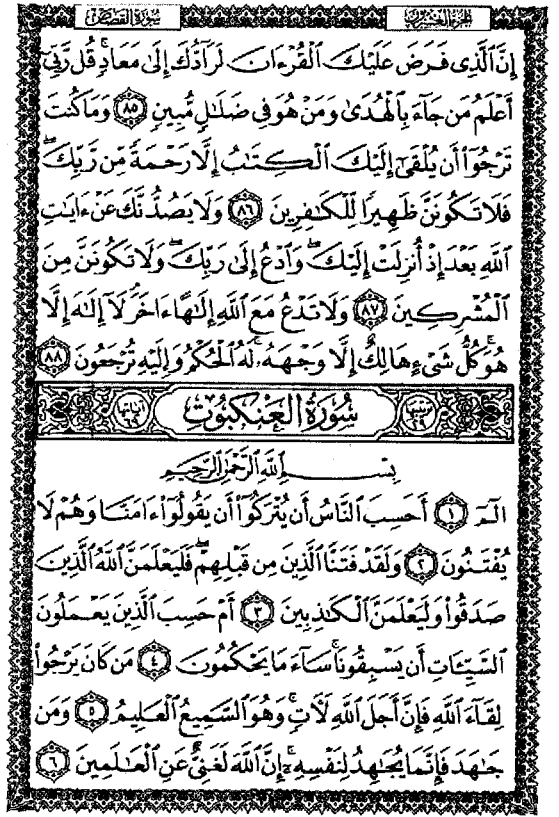 سورة القصص
الجزء العشرون
إِنَّ ٱلَّذِى فَرَضَ عَلَيْكَ ٱلْقُرْءَانَ لَرَآدُّكَ إِلَىٰ مَعَادٍ ۚ قُل رَّبِّىٓ
أَعْلَمُ مَن جَآءَ بِٱلْهُدَىٰ وَمَنْ هُوَ فِى ضَلَٰلٍ مُّبِينٍ ٨٥ وَمَا كُنتَ
تَرْجُوٓا۟ أَن يُلْقَىٰٓ إِلَيْكَ ٱلْكِتَٰبُ إِلَّا رَحْمَةً مِّن رَّبِّكَ ۖ
فَلَا تَكُونَنَّ ظَهِيرًا لِّلْكَٰفِرِينَ ٨٦ وَلَا يَصُدُّنَّكَ عَنْ ءَايَٰتِ
ٱللَّهِ بَعْدَ إِذْ أُنزِلَتْ إِلَيْكَ ۖ وَٱدْعُ إِلَىٰ رَبِّكَ ۖ وَلَا تَكُونَنَّ مِنَ
ٱلْمُشْرِكِينَ ٨٧ وَلَا تَدْعُ مَعَ ٱللَّهِ إِلَٰهًا ءَاخَرَ ۘ لَآ إِلَٰهَ إِلَّا
هُوَ ۚ كُلُّ شَىْءٍ هَالِكٌ إِلَّا وَجْهَهُۥ ۚ لَهُ ٱلْحُكْمُ وَإِلَيْهِ تُرْجَعُونَ ٨٨
ترتيبها ٢٩ سُورَةُ العَنكَبُوت آياتها ٦٩
بِسْمِ ٱللَّهِ ٱلرَّحْمَٰنِ ٱلرَّحِيمِ
الٓمٓ ١ أَحَسِبَ ٱلنَّاسُ أَن يُتْرَكُوٓا۟ أَن يَقُولُوٓا۟ ءَامَنَّا وَهُمْ لَا
يُفْتَنُونَ ٢ وَلَقَدْ فَتَنَّا ٱلَّذِينَ مِن قَبْلِهِمْ ۖ فَلَيَعْلَمَنَّ ٱللَّهُ ٱلَّذِينَ
صَدَقُوا۟ وَلَيَعْلَمَنَّ ٱلْكَٰذِبِينَ ٣ أَمْ حَسِبَ ٱلَّذِينَ يَعْمَلُونَ
ٱلسَّيِّـَٔاتِ أَن يَسْبِقُونَا ۚ سَآءَ مَا يَحْكُمُونَ ٤ مَن كَانَ يَرْجُوا۟
لِقَآءَ ٱللَّهِ فَإِنَّ أَجَلَ ٱللَّهِ لَءَاتٍ ۚ وَهُوَ ٱلسَّمِيعُ ٱلْعَلِيمُ ٥ وَمَن
جَٰهَدَ فَإِنَّمَا يُجَٰهِدُ لِنَفْسِهِۦٓ ۚ إِنَّ ٱللَّهَ لَغَنِىٌّ عَنِ ٱلْعَٰلَمِينَ ٦